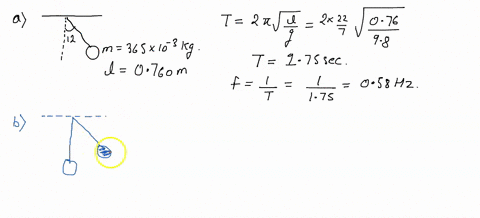 a)
12
m = 365 x 10⁻³ kg.
l = 0.760 m
T = 2π√(l/g) = 2x22/7 √(0.76/9.8)
T = 1.75 sec.
f = 1/T = 1/1.75 = 0.58 Hz.
b)